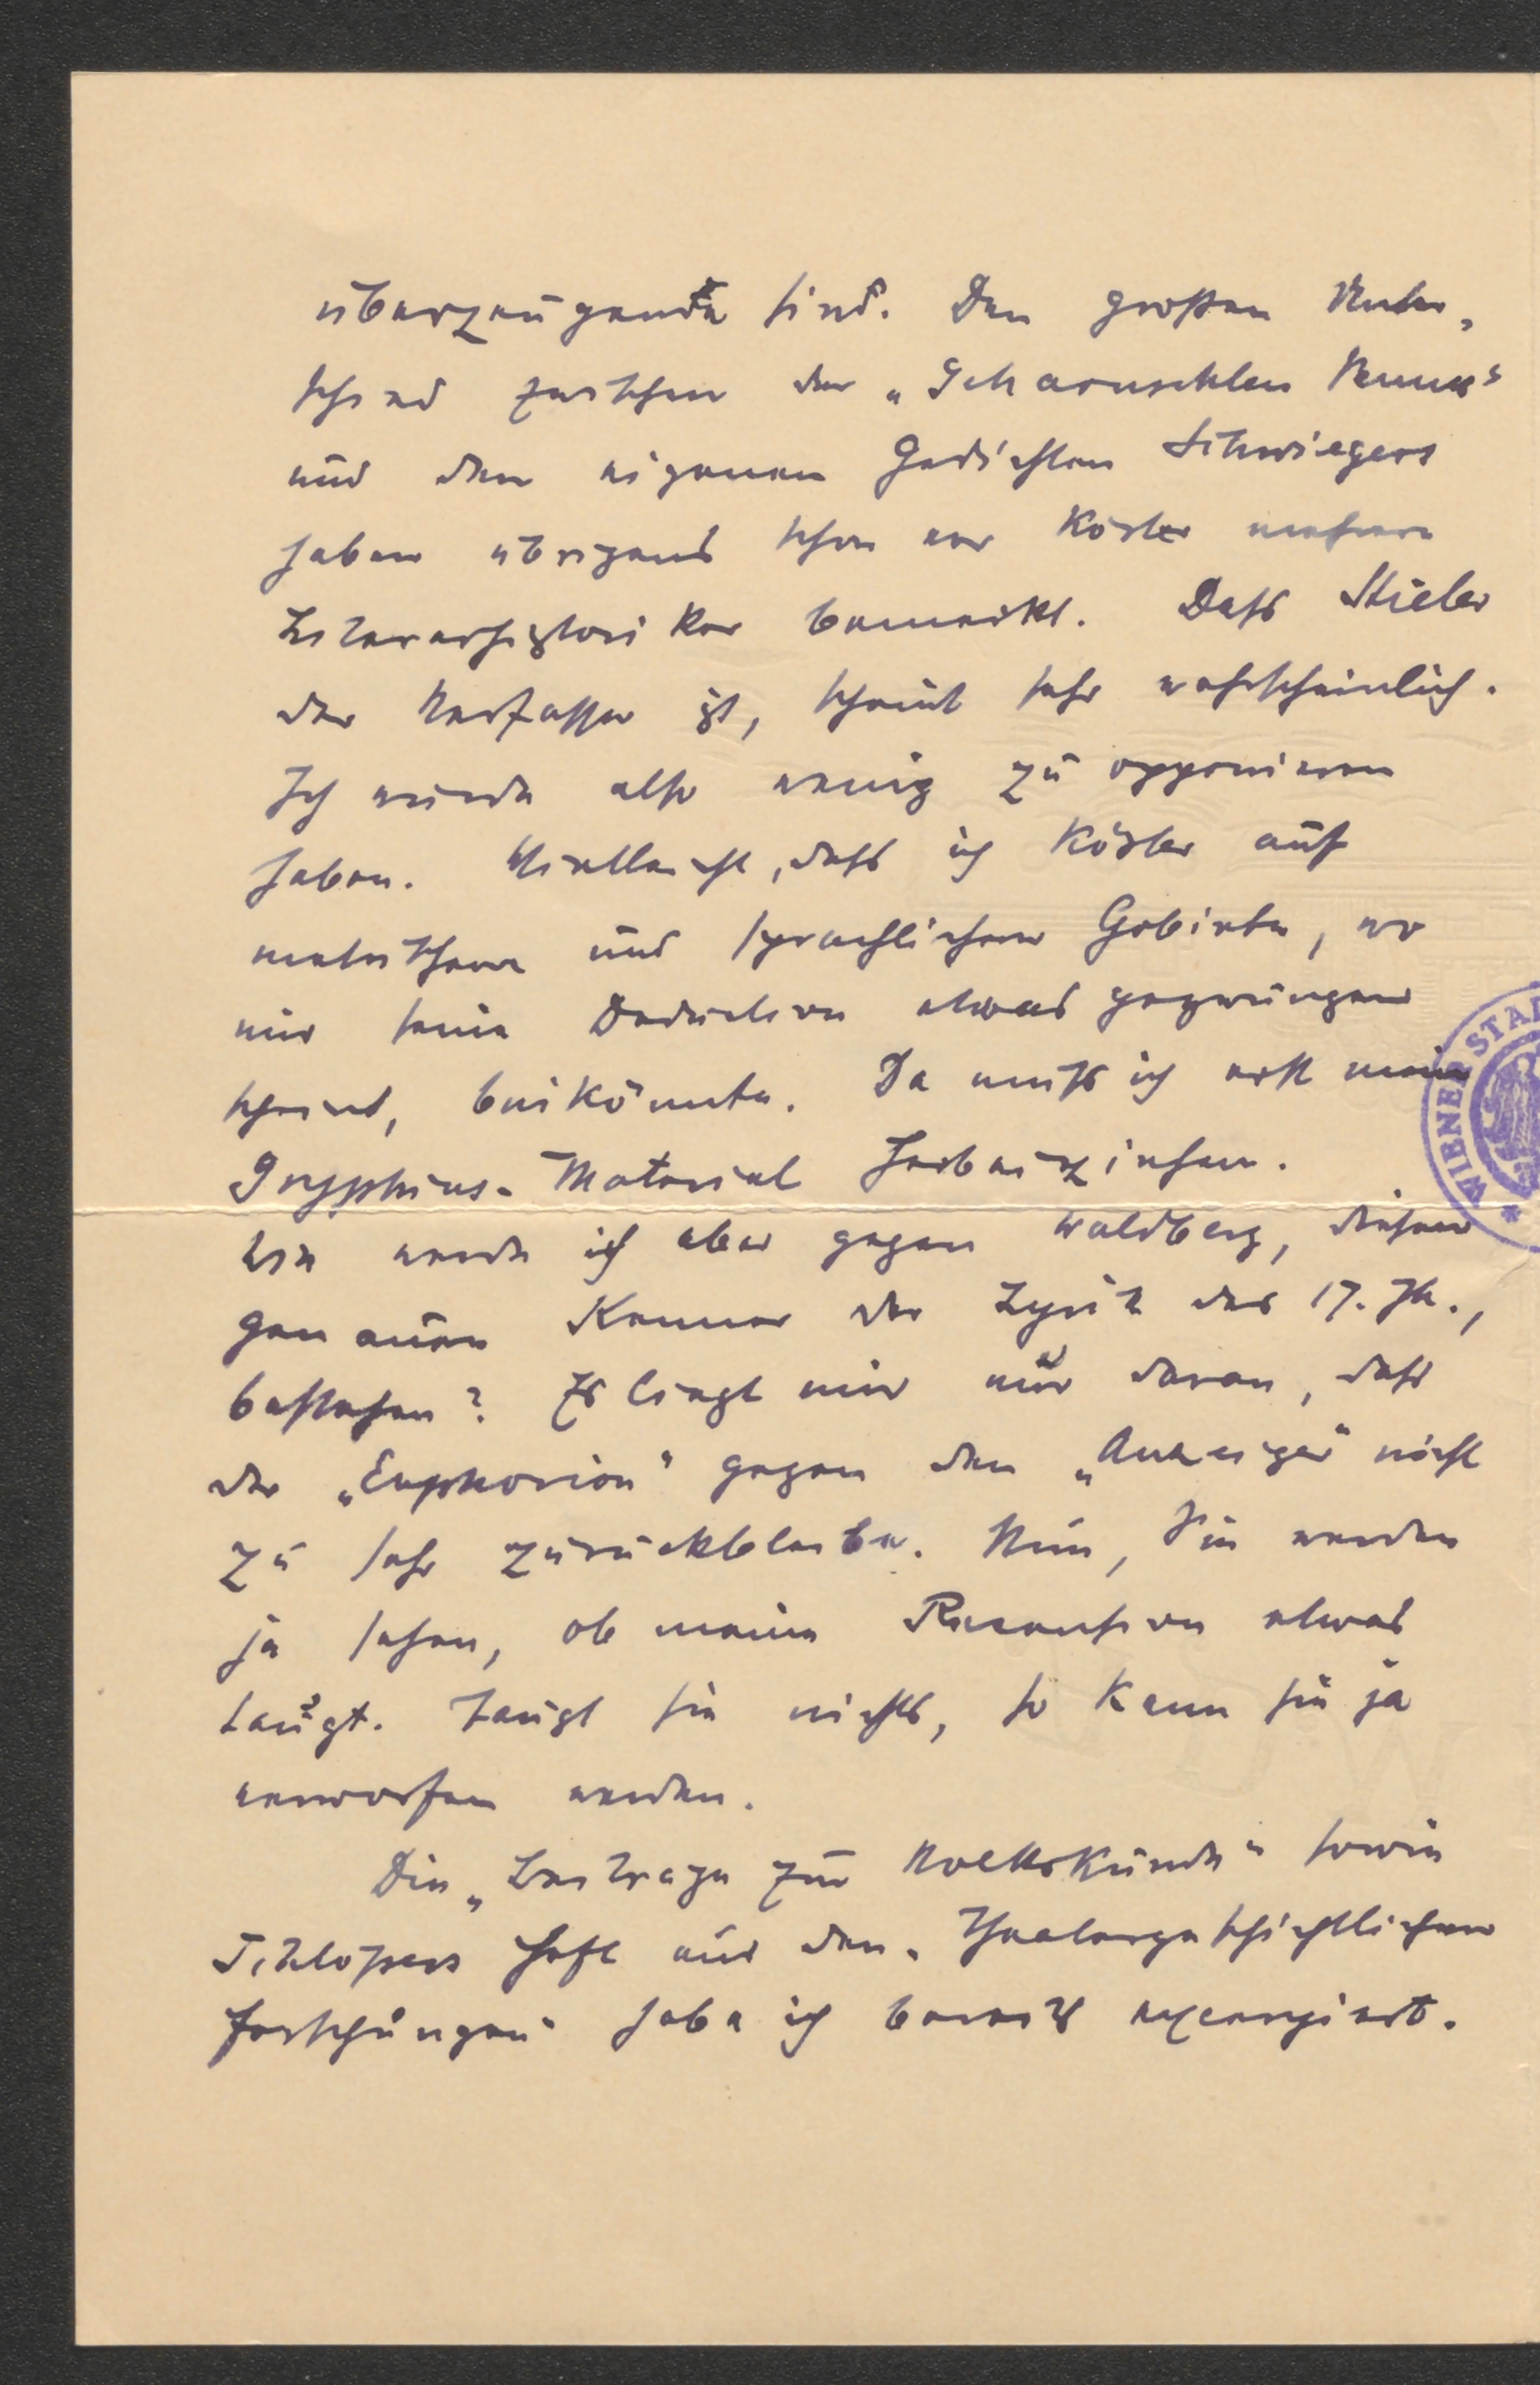 überzeugende sind. Den großen Unter-
schied zwischen der „Geharnschten Venus"
und den eigenen Gedichten Schwiegers
haben übrigens schon vor Köster mehrere
Literarhistoriker bemerkt. Dass Stieler
der Verfasser ist, scheint sehr wahrscheinlich.
Ich würde also wenig zu opponieren
haben. Vielleicht, dass ich Köster auf
metrischem und sprachlichem Gebiete, wo
mir seine Deduction etwas gezwungen
scheint, beikönnte. Da muss ich erst mein
Gryphius-Material herbeiziehen.
Wie werde ich aber gegen Waldberg, diesen
genauen Kenner der Lyrik des 17. Jh.,
bestehen? Es liegt mir nur daran, dass
der „Euphorion" gegen den „Anzeiger" nicht
zu sehr zurückbleibe. Nun, Sie werden
ja sehen, ob meine Recension etwas
taugt. Taugt sie nichts, so kann sie ja
verworfen werden.
Die „Beiträge zur Volkskunde" sowie
Schlossers Heft aus den „Theatergeschichtlichen
Forschungen" habe ich bereits excerpiert.
WIENER STA